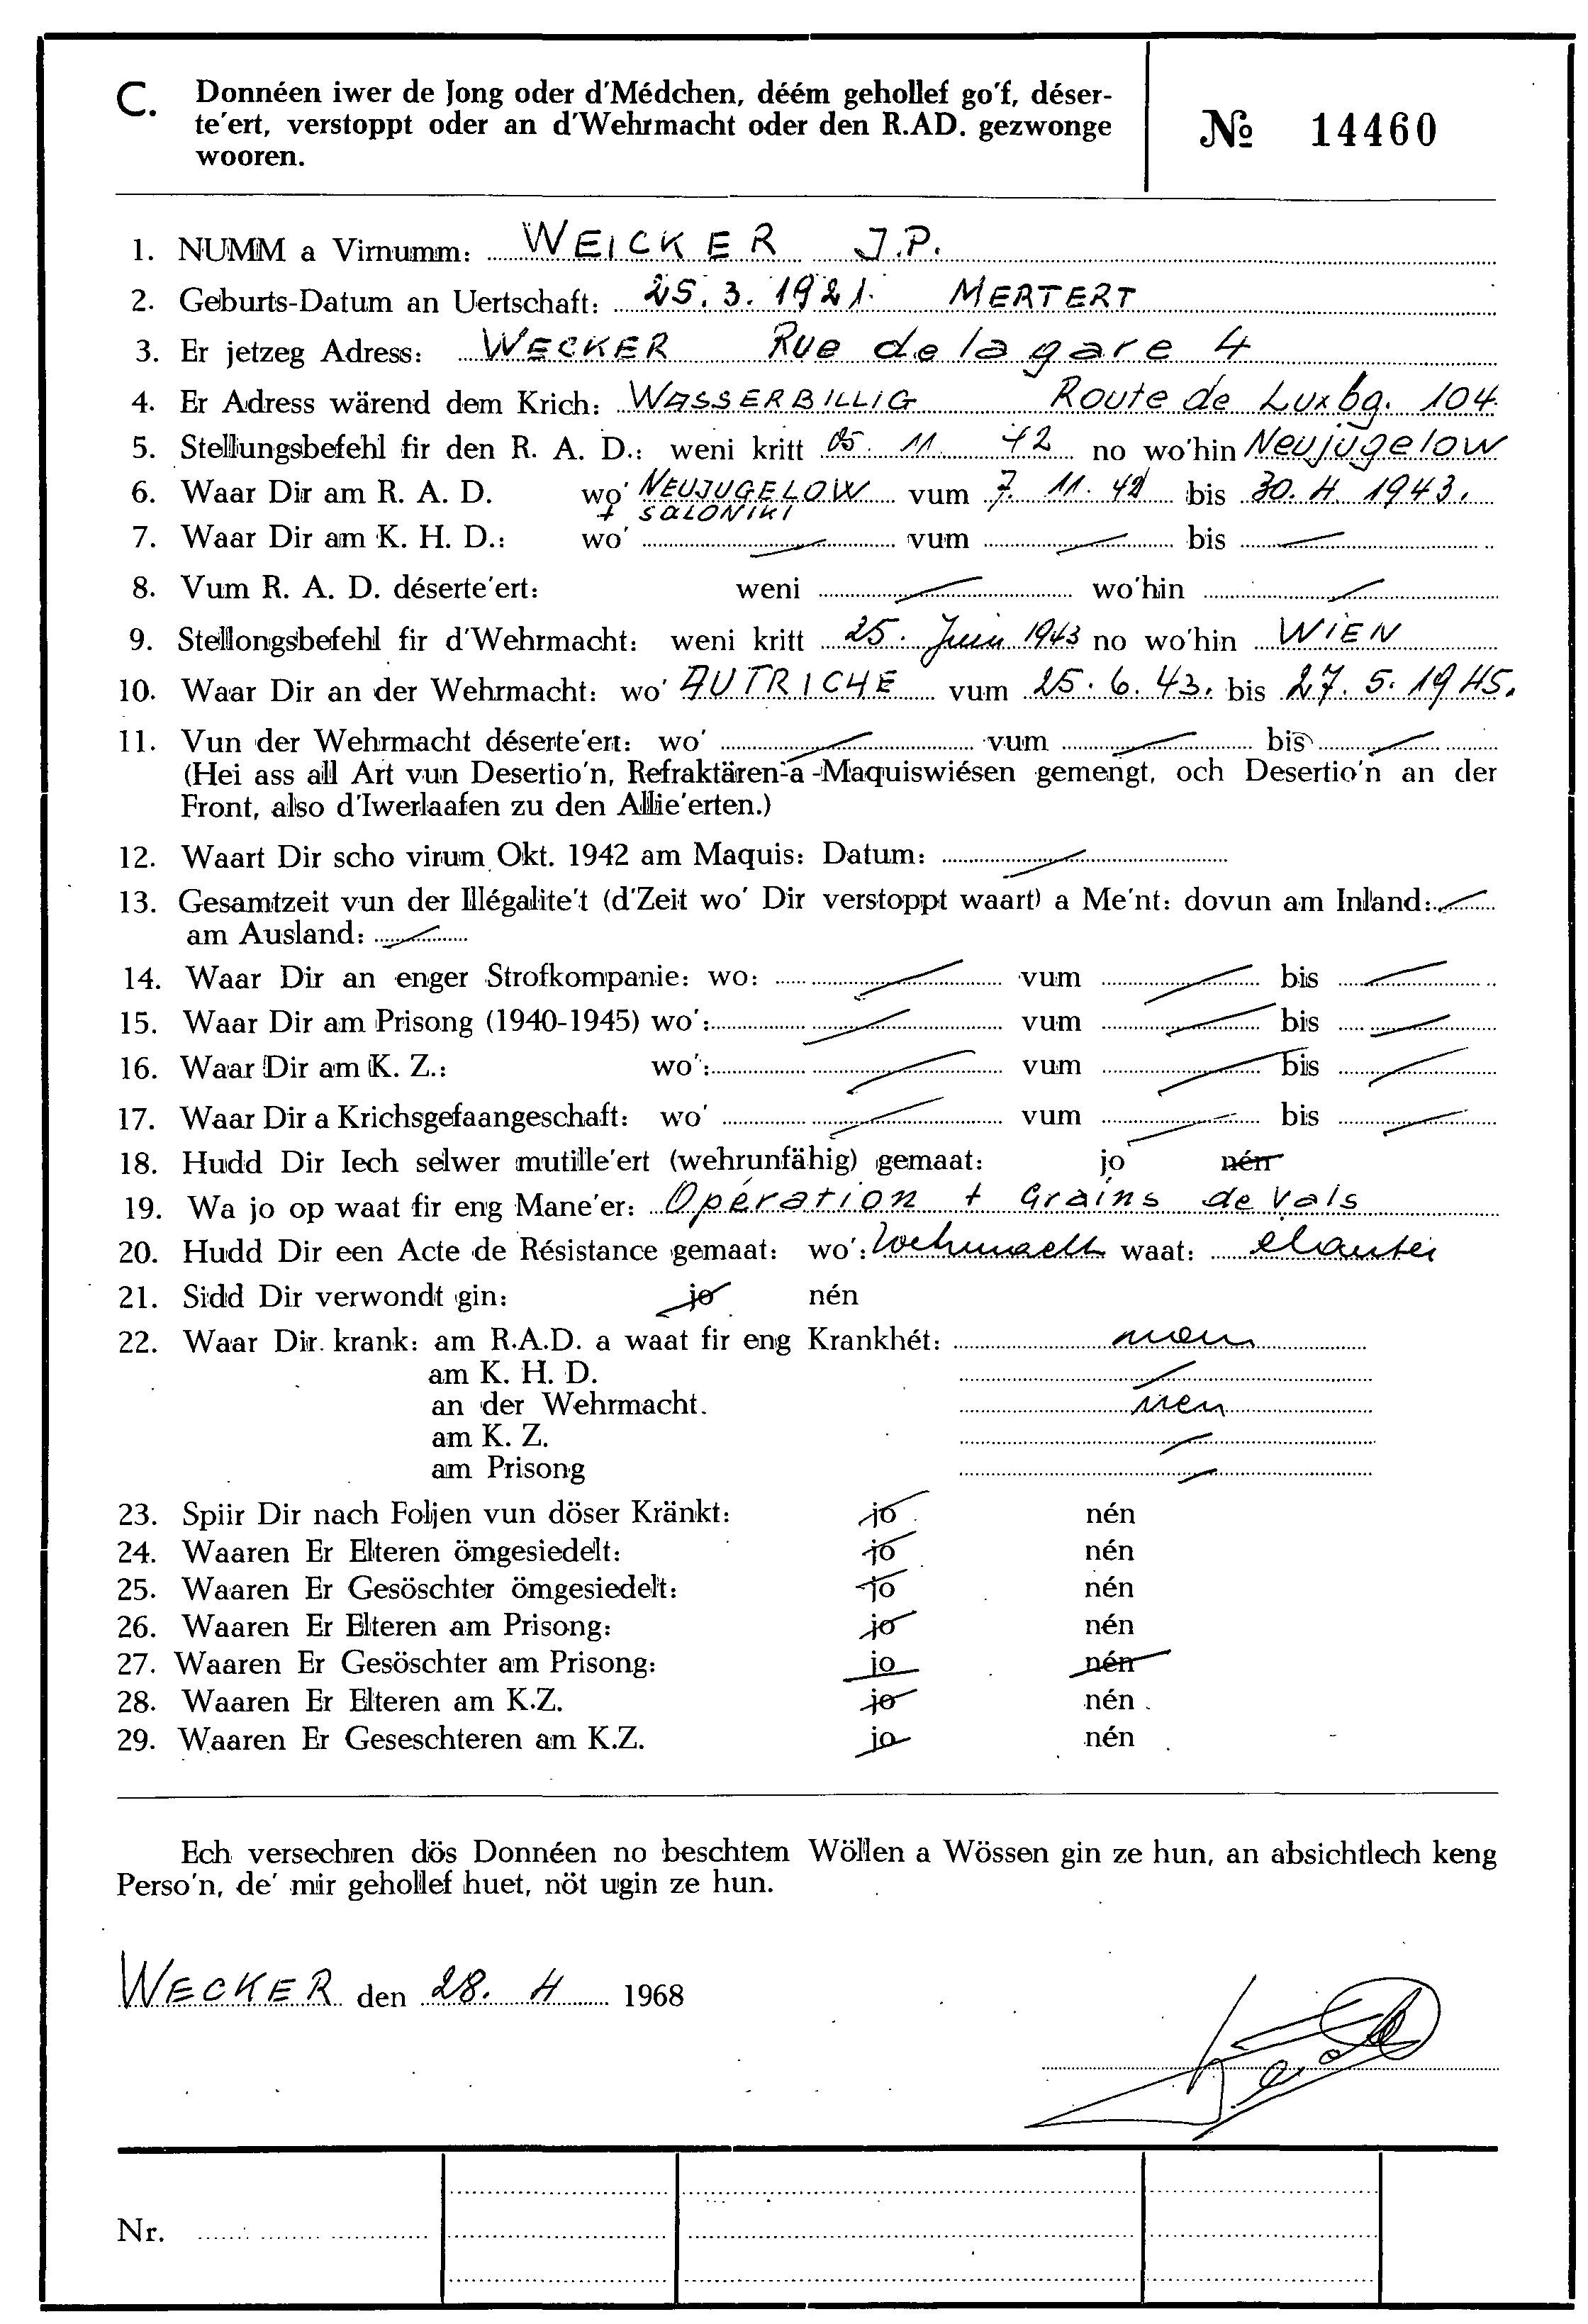 C. Donnéen iwer de Jong oder d'Médchen, déém gehollef go'f, déser-
te'ert, verstoppt oder an d'Wehrmacht oder den R.AD. gezwonge
wooren.
№ 14460
1. NUMM a Virnumm: WEICKER J.P.
2. Geburts-Datum an Uertschaft: 25.3.1921. MERTERT
3. Er jetzeg Adress: WECKER Rue de la gare 4
4. Er Adress wärend dem Krich: WASSERBILLIG Route de Luxbg. 104
5. Stellungsbefehl fir den R. A. D.: weni kritt 05 11 42 no wo'hin Neujugelow
6. Waar Dir am R. A. D. wo' NEUJUGELOW vum 7. 11. 42 bis 30. 4. 1943.
+ SALONIKI
7. Waar Dir am K. H. D.: wo' vum bis
8. Vum R. A. D. déserte'ert: weni wo'hin
9. Stellongsbefehl fir d'Wehrmacht: weni kritt 25. Juin 1943 no wo'hin WIEN
10. Waar Dir an der Wehrmacht: wo' AUTRICHE vum 25. 6. 43. bis 27. 5. 1945.
11. Vun der Wehrmacht déserte'ert: wo' vum bis
(Hei ass all Art vun Desertio'n, Refraktären-a-Maquiswiésen gemengt, och Desertio'n an der
Front, also d'Iwerlaafen zu den Allie'erten.)
12. Waart Dir scho virum Okt. 1942 am Maquis: Datum:
13. Gesamtzeit vun der Illégalite't (d'Zeit wo' Dir verstoppt waart) a Me'nt: dovun am Inland:
am Ausland:
14. Waar Dir an enger Strofkompanie: wo: vum bis
15. Waar Dir am Prisong (1940-1945) wo': vum bis
16. Waar Dir am K. Z.: wo': vum bis
17. Waar Dir a Krichsgefaangeschaft: wo' vum bis
18. Hudd Dir Iech selwer mutille'ert (wehrunfähig) gemaat: jo nén
19. Wa jo op waat fir eng Mane'er: Opération + Grains de Vals
20. Hudd Dir een Acte de Résistance gemaat: wo': Wehrmacht waat:
21. Sidd Dir verwondt gin: jo nén
22. Waar Dir. krank: am R.A.D. a waat fir eng Krankhét: nen
am K. H. D.
an der Wehrmacht. nen
am K. Z.
am Prisong
23. Spiir Dir nach Foljen vun döser Kränkt: jo nén
24. Waaren Er Elteren ömgesiedelt: jo nén
25. Waaren Er Gesöschter ömgesiedelt: jo nén
26. Waaren Er Elteren am Prisong: jo nén
27. Waaren Er Gesöschter am Prisong: jo nén
28. Waaren Er Elteren am K.Z. jo nén
29. Waaren Er Geseschteren am K.Z. jo nén
Ech versechren dös Donnéen no beschtem Wöllen a Wössen gin ze hun, an absichtlech keng
Perso'n, de' mir gehollef huet, nöt ugin ze hun.
WECKER den 28. 4 1968
Nr.